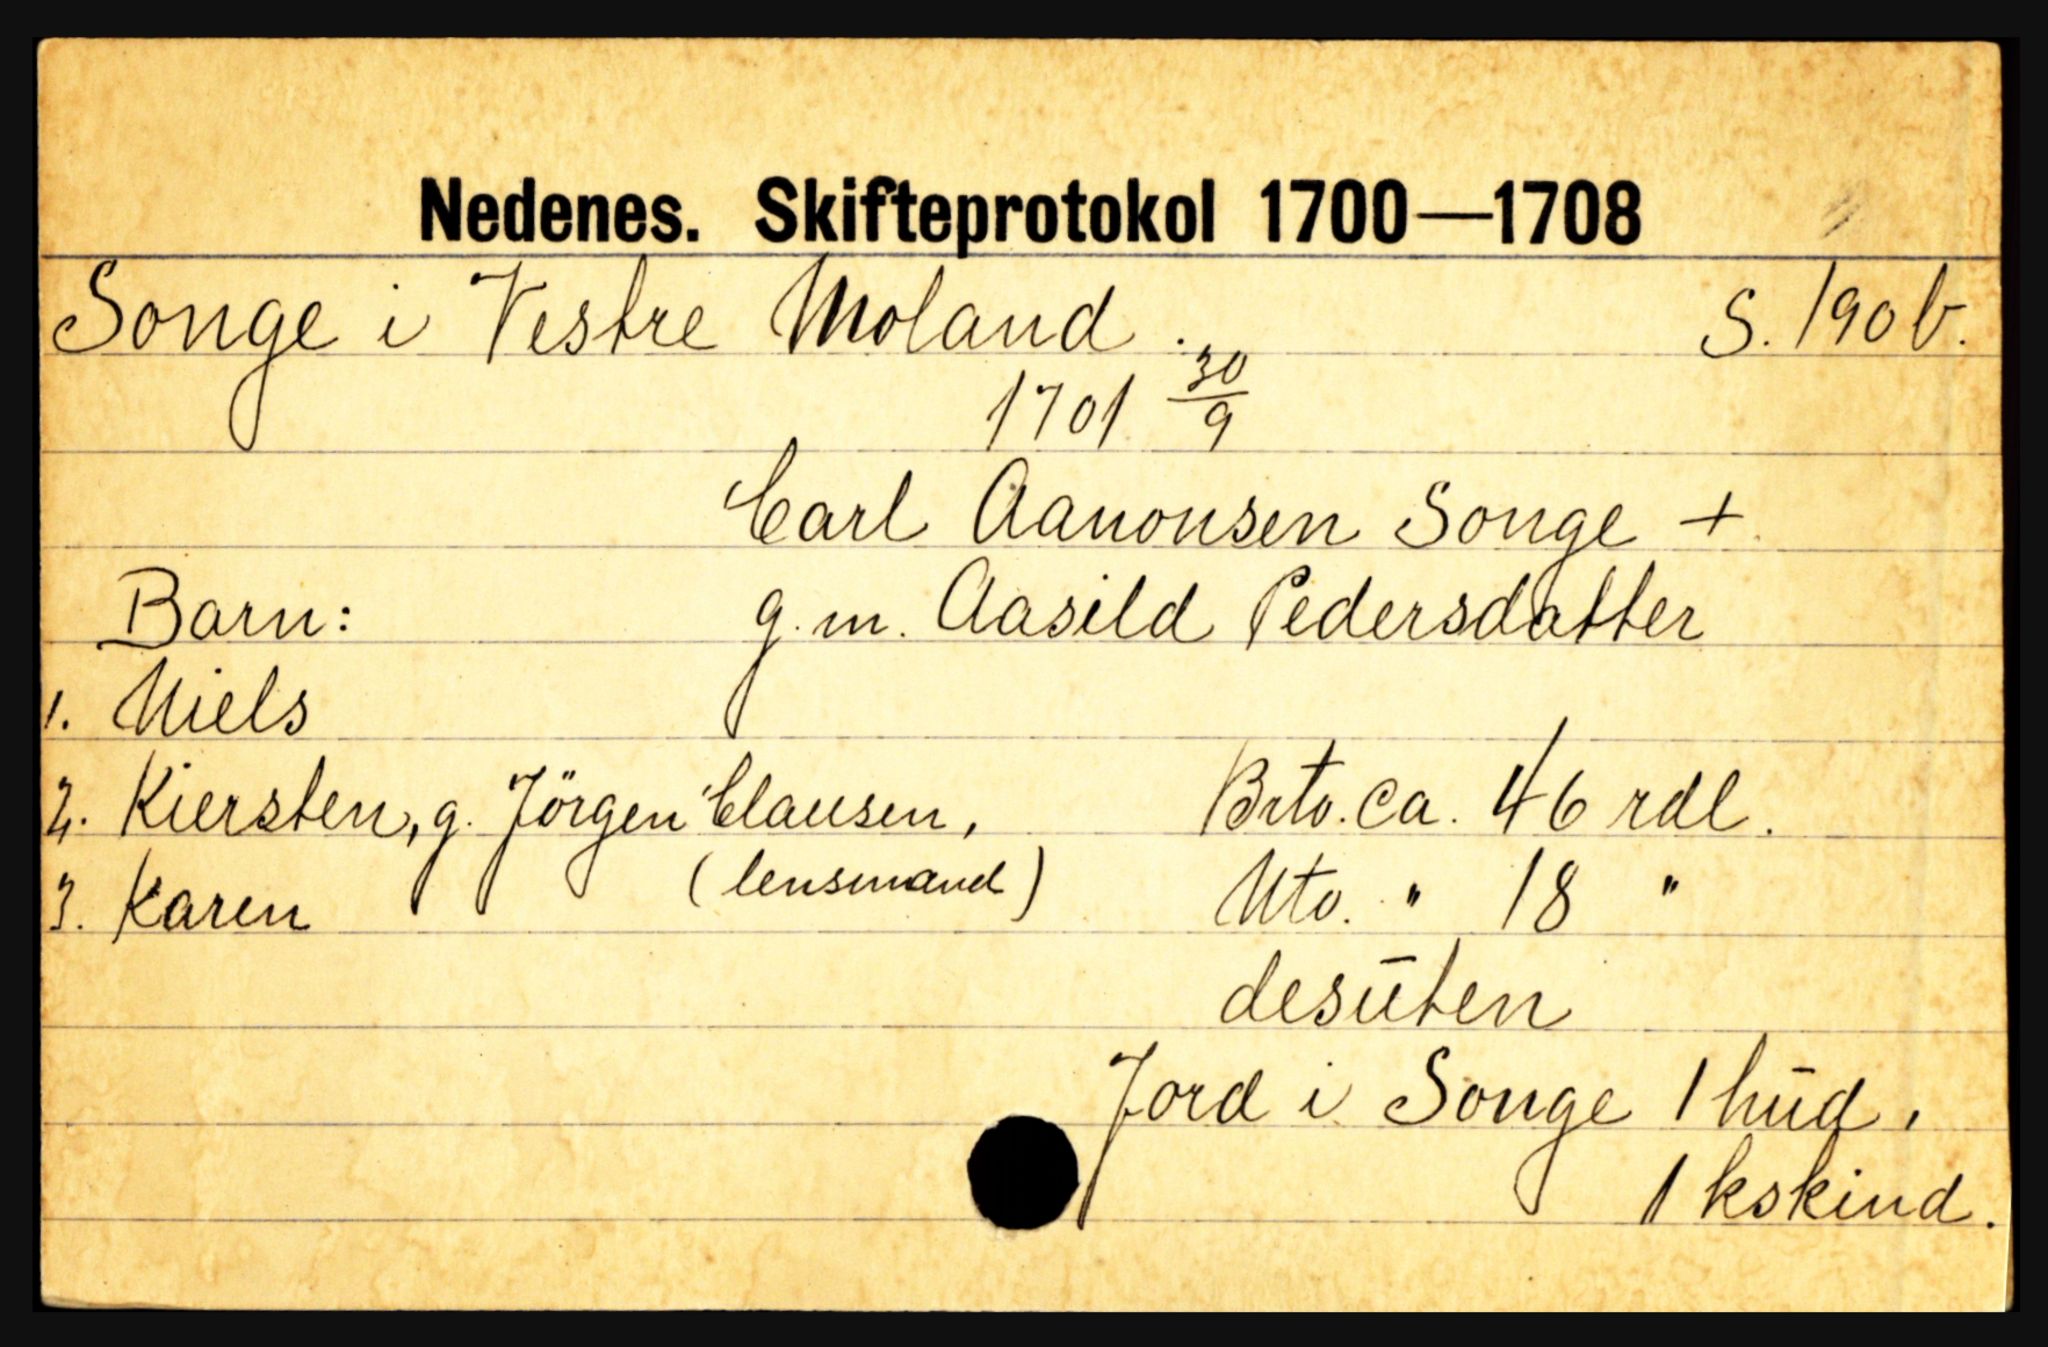 Nedenes. Skifteprotokol 1700—1708
Songe i Vestre Moland. S. 190 b.
1701 30/9
Carl Aanonsen Songe +
Barn: g. m. Aasild Pedersdatter
1. Niels
2. Kiersten, g. Jörgen Clausen, Brto. ca. 46 rdl.
(lensmand)
3. Karen Nto. " 18 "
desūten
Jord i Songe 1 hūd,
1 kskind.